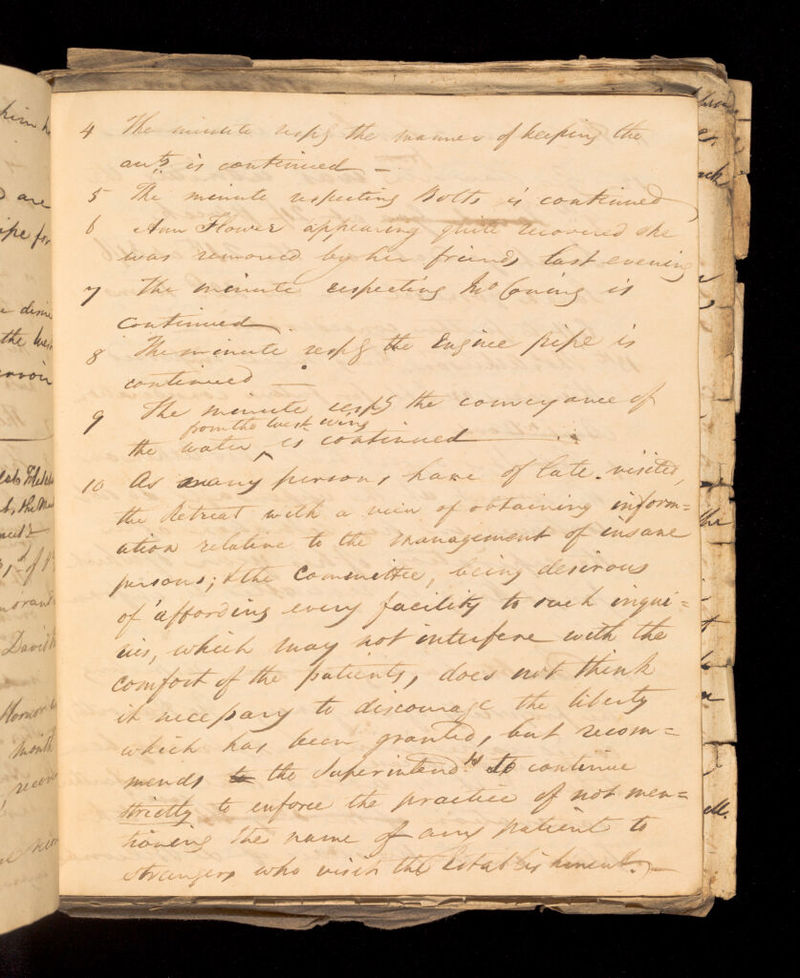 4 The minute respg the manner of keeping the
acts. is continued —
5 The minute respecting Bolts is continued
6 Ann Flower appearing quite recovered she
was removed by her friends last evening
7 The minute respecting Mo is
continued
8 The minute respg the Engine pipe is
continued —
9 The minute respg the conveyance of
from the west wing
the water ^ is continued
10 As many persons have of late visited,
the Retreat with a view of obtaining inform=
ation relative to the management of insane
persons; & the Committee, being desirous
of affording every facility to such inqui=
ries, which may not interfere with the
comfort of the patients, does not think
it necessary to discourage the liberty
which has been granted, but recom=
mends to the Superintendts to continue
strictly to enforce the practice of not men=
tioning the name of any patient to
strangers who visit the Establishment. —